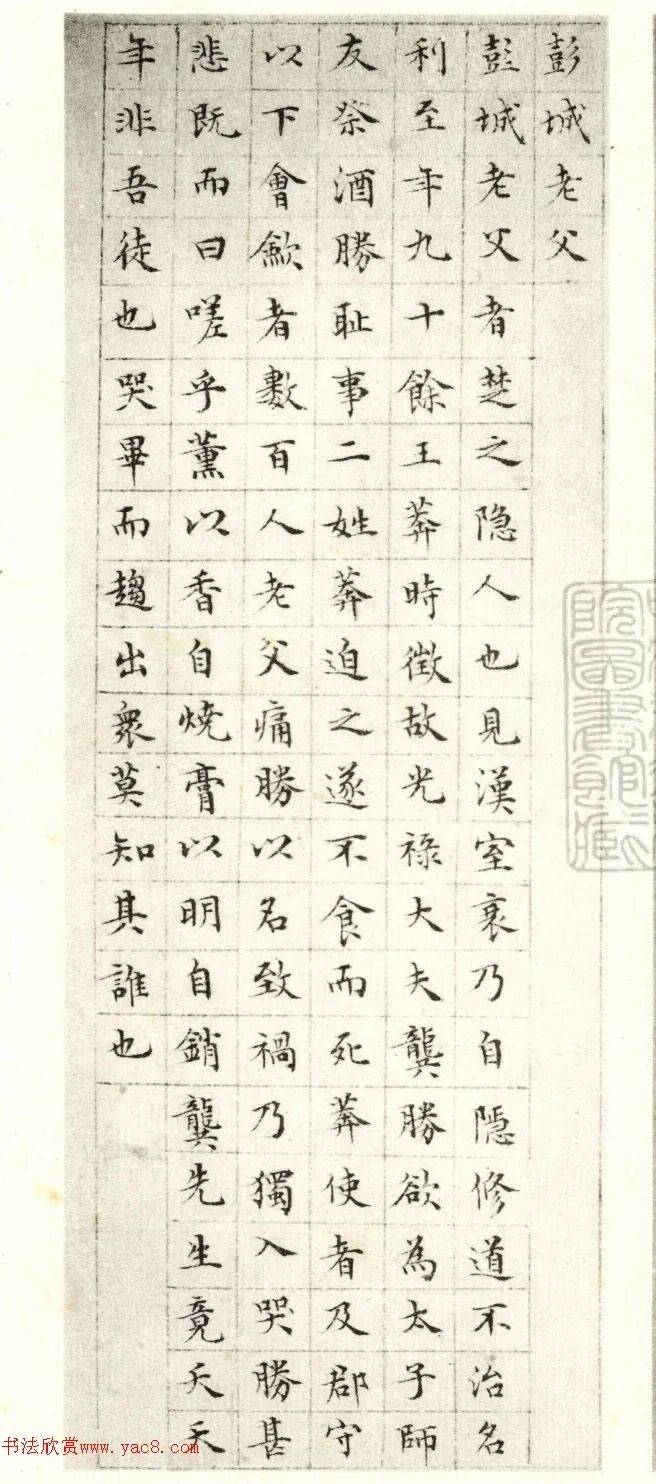 彭城老父
彭城老父者楚之隐人也見漢室衰乃自隱修道不治名
利至年九十餘王莽時徵故光祿大夫龔勝欲為太子師
友祭酒勝耻事二姓莽迫之遂不食而死莽使者及郡守
以下會歛者數百人老父痛勝以名致禍乃獨入哭勝甚
悲既而曰嗟乎薰以香自燒膏以明自銷龔先生竟夭天
年非吾徒也哭畢而趨出衆莫知其誰也
院圖書館藏
书法欣赏www.yac8.com